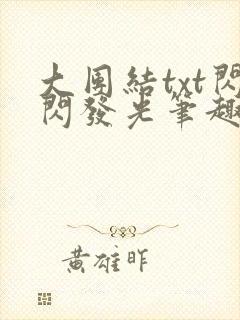 大團結txt閃
閃發光筆趣
黃雄昨